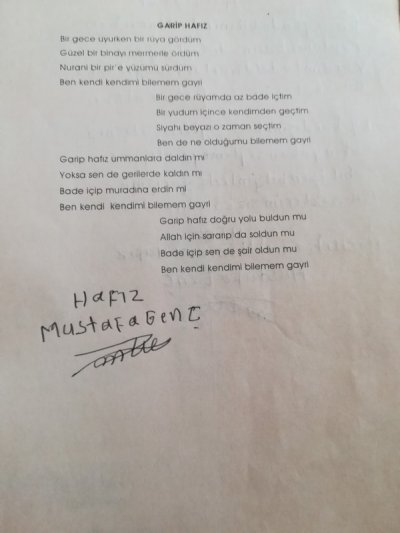 GARİP HAFIZ
Bir gece uyurken bir rüya gördüm
Güzel bir binayı mermerle ördüm
Nurani bir pir'e yüzümü sürdüm
Ben kendi kendimi bilemem gayri
Bir gece rüyamda az bade içtim
Bir yudum içince kendimden geçtim
Siyahı beyazı o zaman seçtim
Ben de ne olduğumu bilemem gayri
Garip hafız ummanlara daldın mı
Yoksa sen de gerilerde kaldın mı
Bade içip muradına erdin mi
Ben kendi kendimi bilemem gayri
Garip hafız doğru yolu buldun mu
Allah için sararıp da soldun mu
Bade içip sen de şair oldun mu
Ben kendi kendimi bilemem gayri
HaFIZ
MustaFa Genç